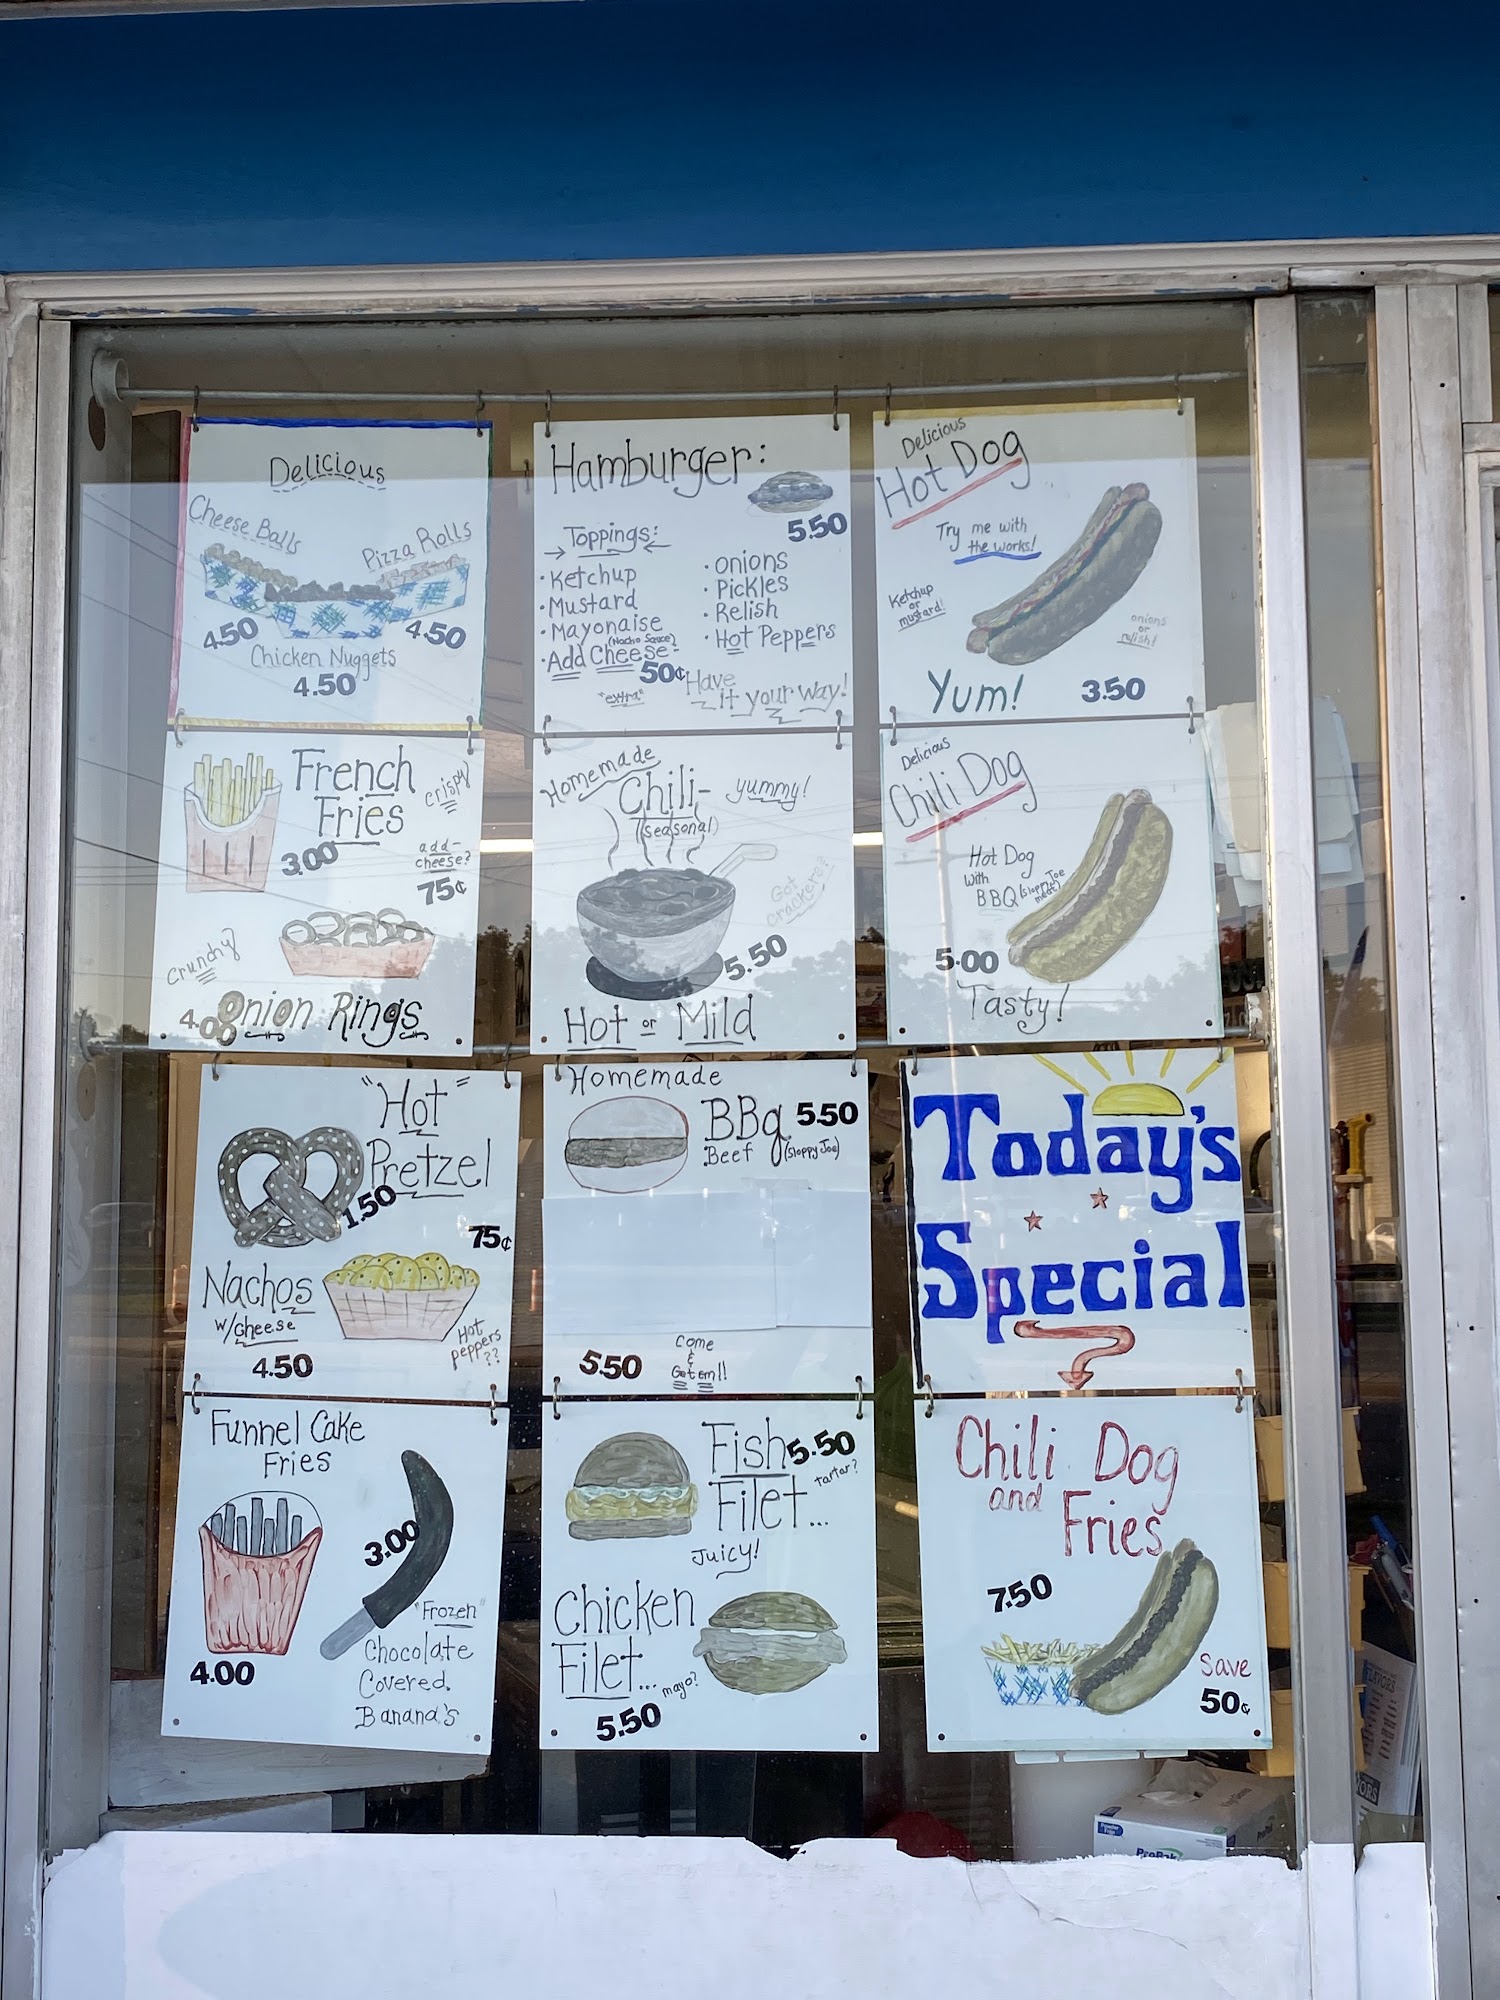 Delicious
Cheese Balls
Pizza Rolls
4.50
4.50
Chicken Nuggets
4.50
Hamburger:
5.50
Toppings:
• Ketchup
• Mustard
• Mayonaise
(Nacho Sauce?)
• Add Cheese-
50¢
"extra"
• onions
• Pickles
• Relish
• Hot Peppers
Have
it your way!
Delicious
Hot Dog
Try me with
the works!
Ketchup
or
mustard!
onions
or
relish!
Yum!
3.50
French
Fries
crispy
3.00
add-
cheese?
75¢
Crunchy?
4.00
Onion Rings
Homemade
Chili-
(seasonal)
yummy!
Got
crackers?
5.50
Hot or Mild
Delicious
Chili Dog
Hot Dog
with
BBQ (Sloppy Joe
meat)
5.00
Tasty!
"Hot"
Pretzel
1.50
75¢
Nachos
w/cheese
4.50
Hot
peppers
??
Homemade
BBq 5.50
Beef (Sloppy Joe)
5.50
Come
&
Get em!!
Today's
Special
Funnel Cake
Fries
4.00
3.00
"Frozen"
Chocolate
Covered
Banana's
Fish 5.50
Filet...
tartar?
Juicy!
Chicken
Filet...
mayo?
5.50
Chili Dog
and
Fries
7.50
Save
50¢